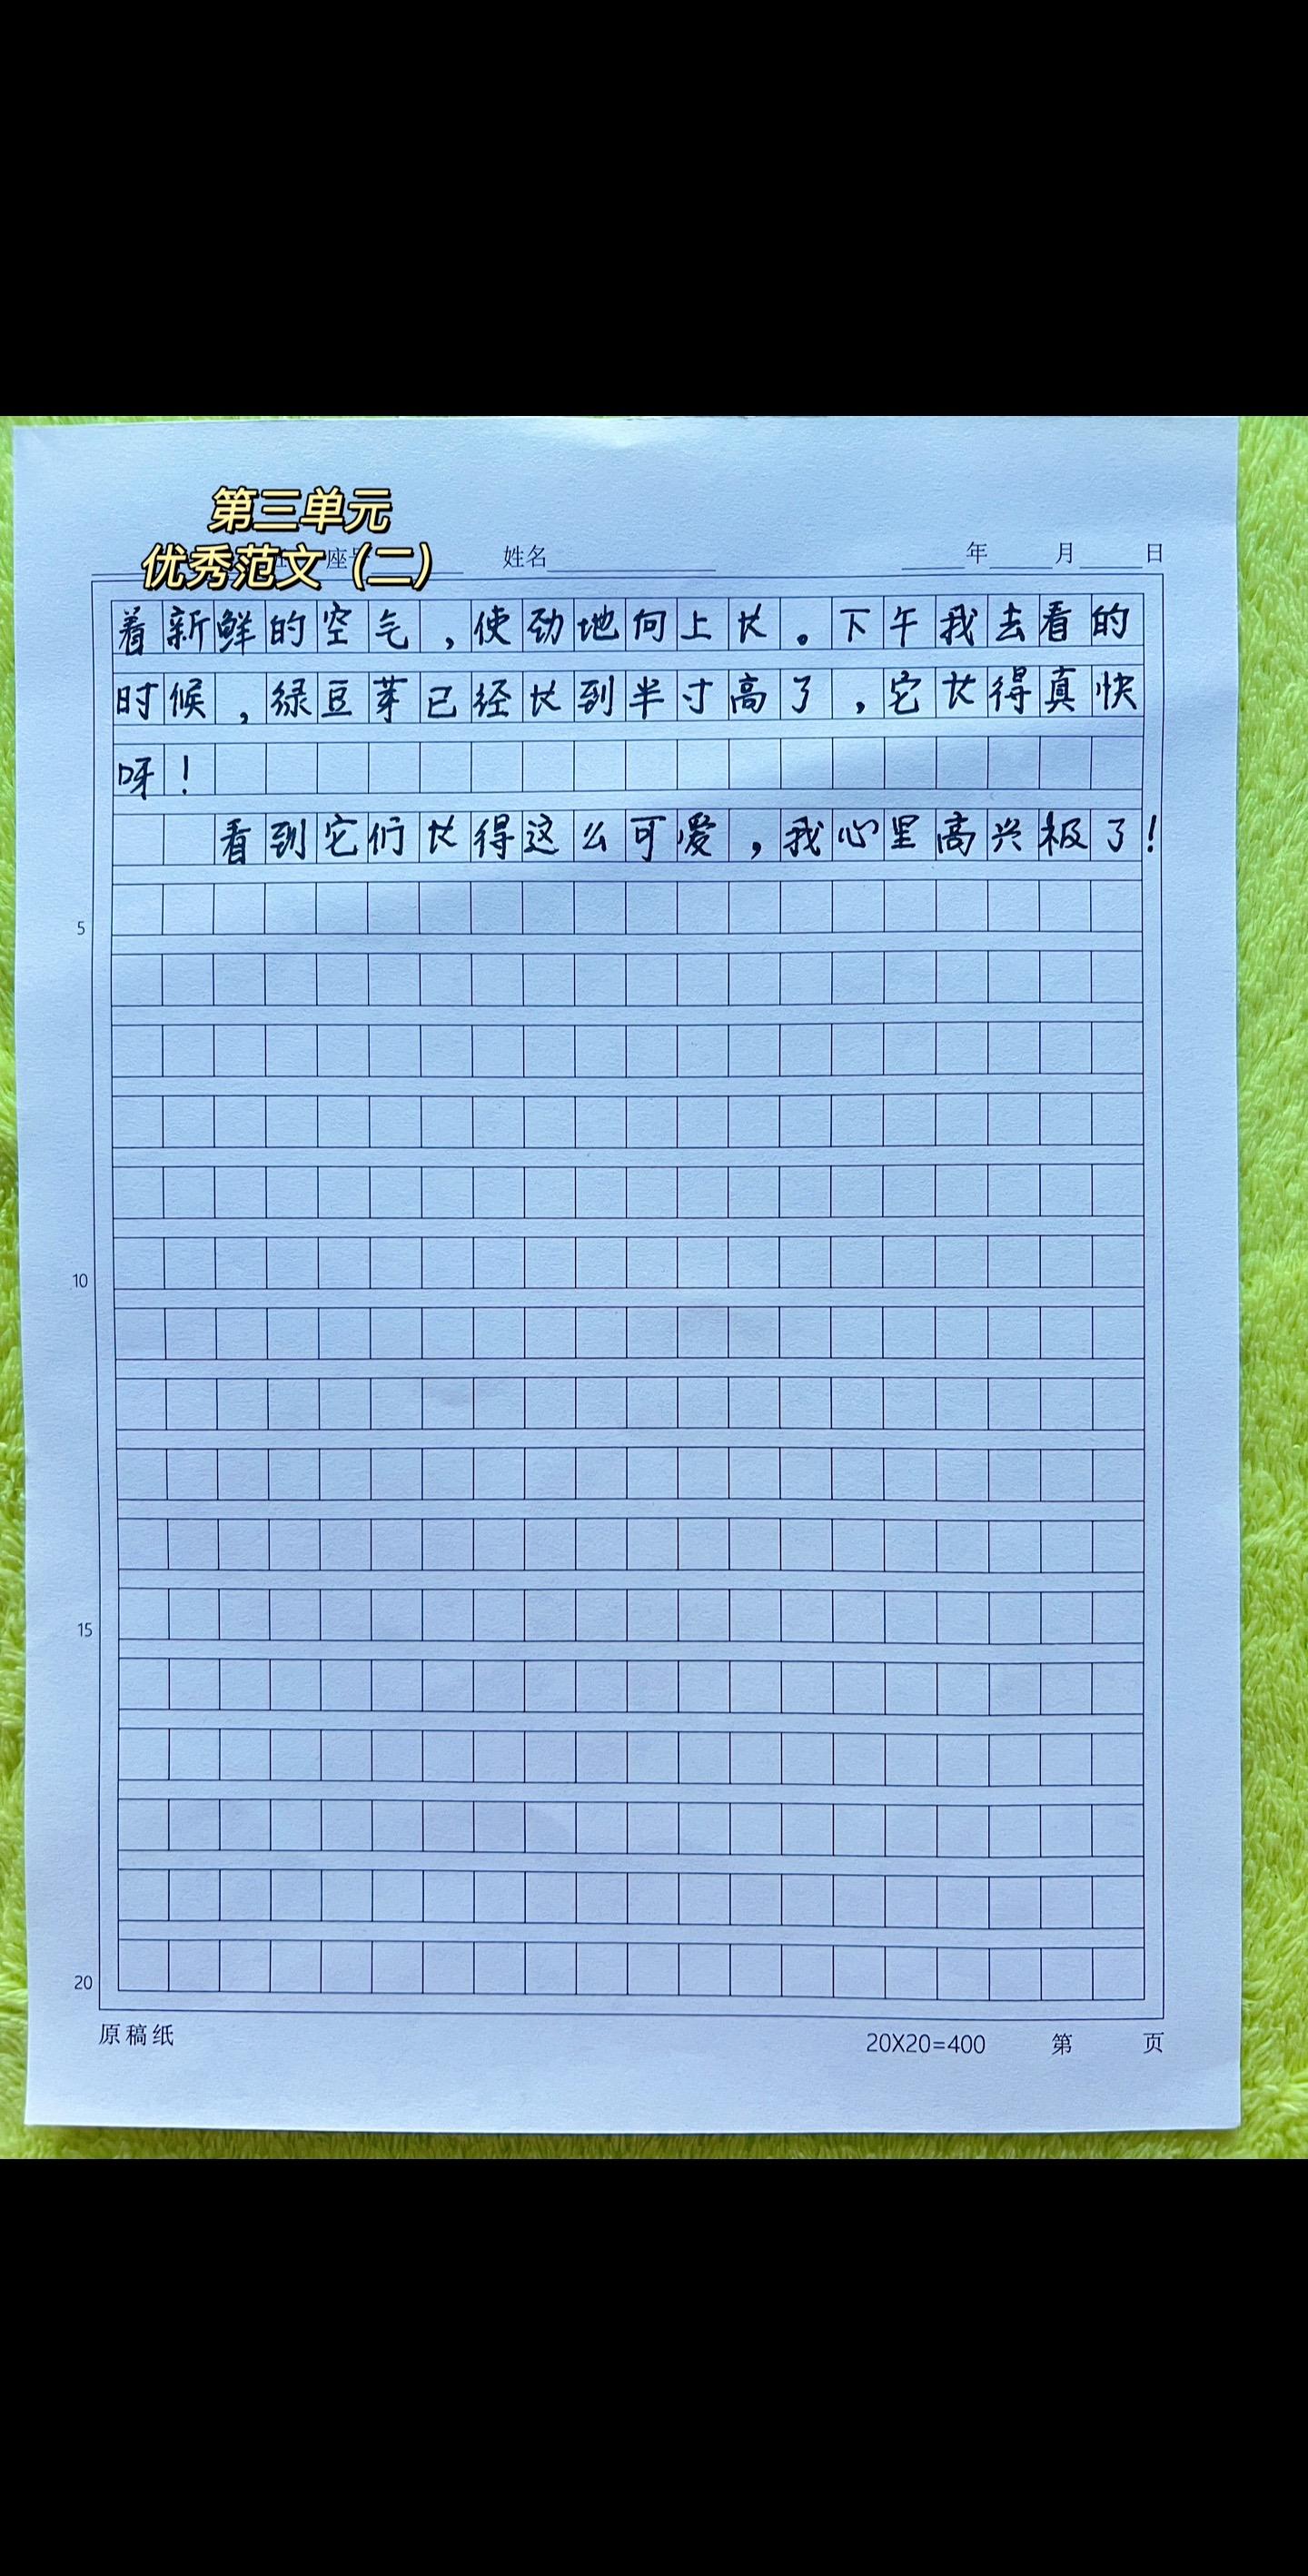 第三单元
优秀范文（二）
座号 姓名 年 月 日
着新鲜的空气，使劲地向上长。下午我去看的
时候，绿豆芽已经长到半寸高了，它长得真快
呀！
看到它们长得这么可爱，我心里高兴极了！
5
10
15
20
原稿纸 20X20=400 第 页